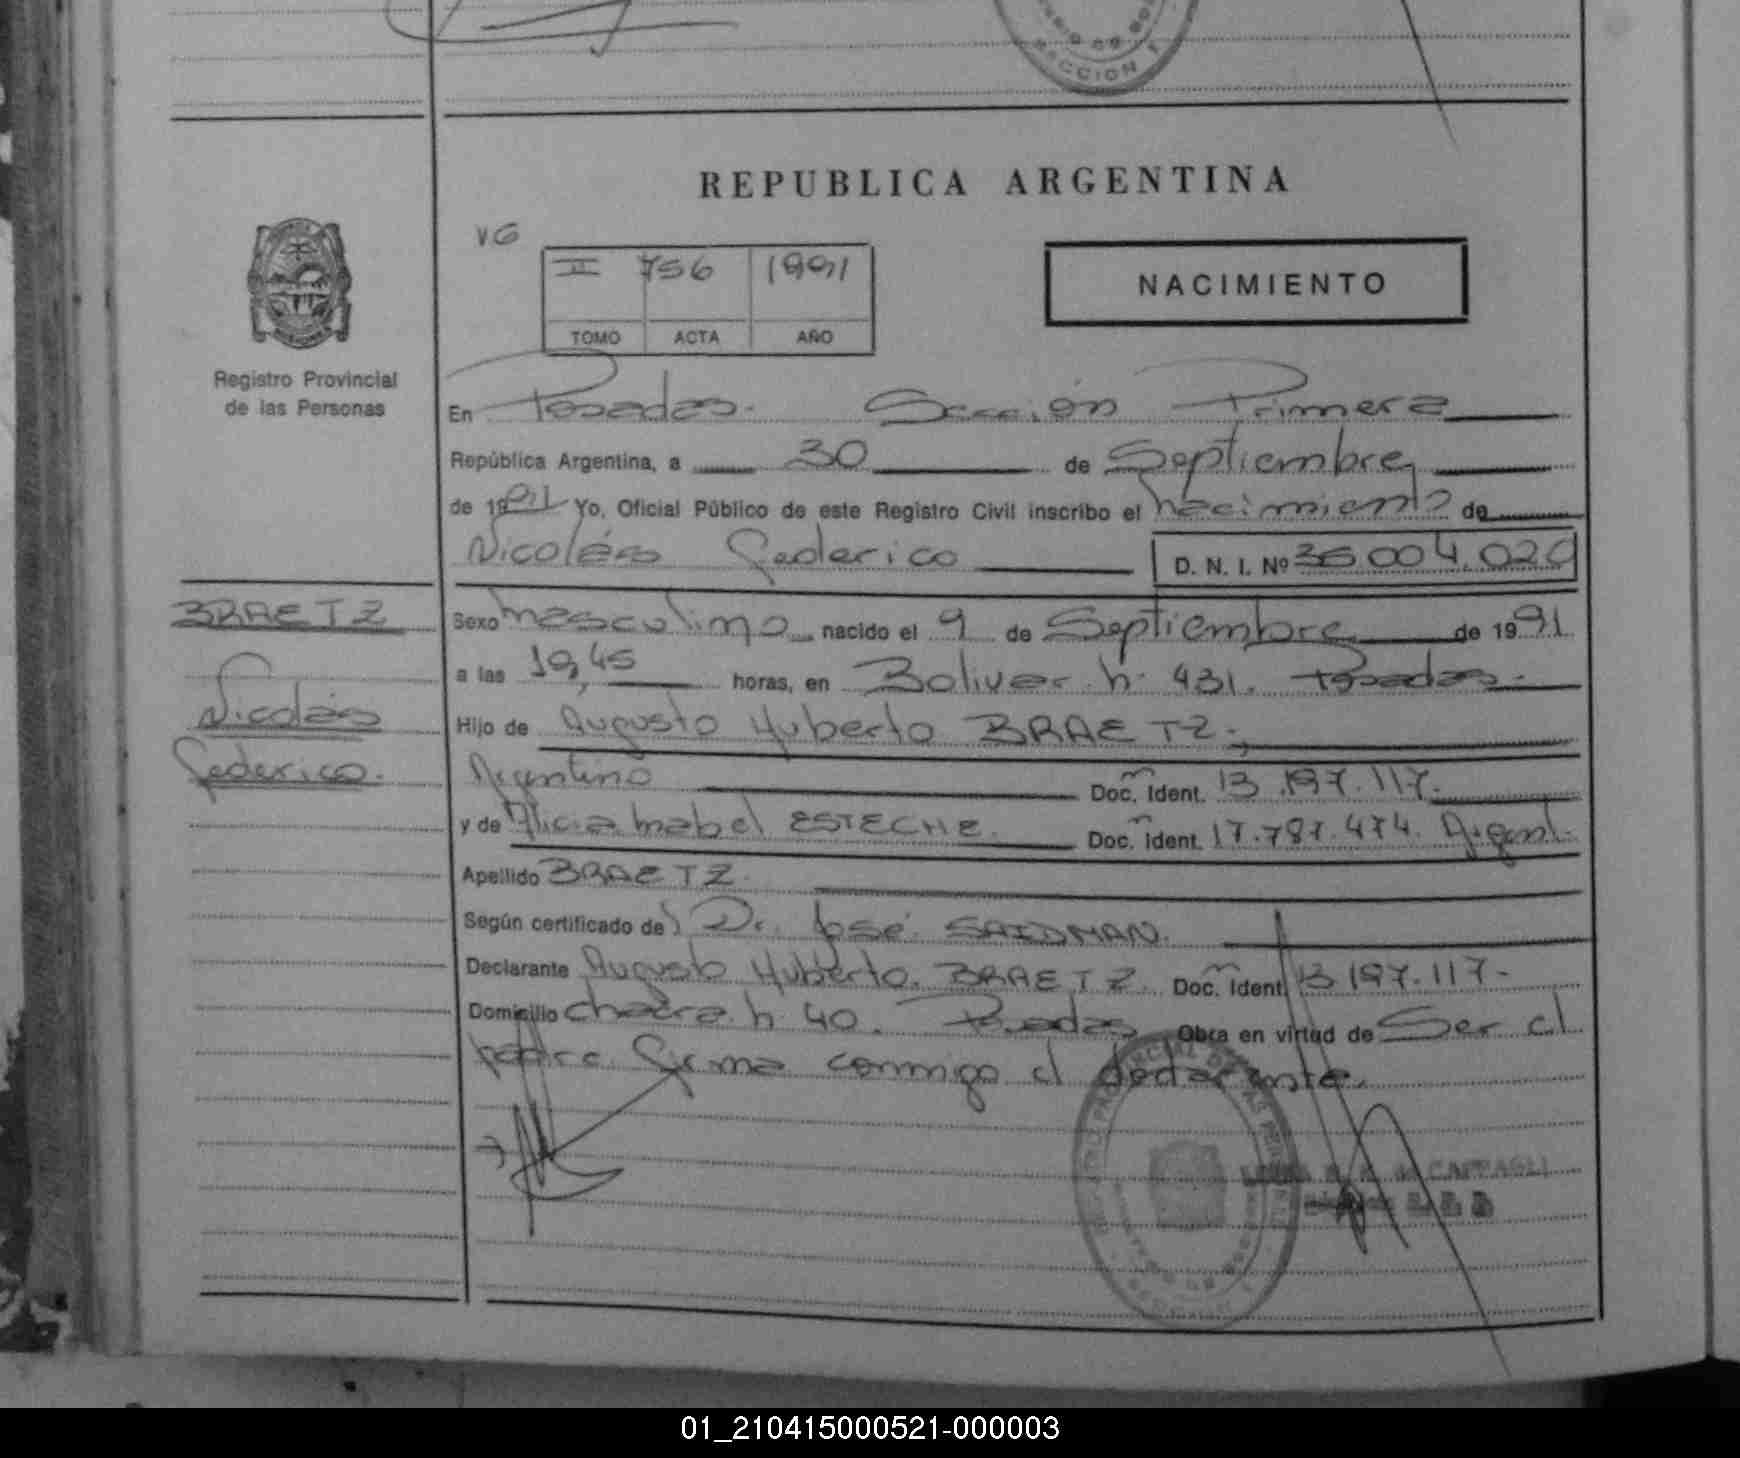 SECCION 1
REPUBLICA ARGENTINA
VG
II 756 1991
TOMO ACTA AÑO
NACIMIENTO
Registro Provincial
de las Personas
En Posadas. Sección Primera
República Argentina, a 30 de Septiembre
de 1991 Yo, Oficial Público de este Registro Civil inscribo el nacimiento de
Nicolás Federico D. N. I. Nº 36.004.020
BRAETZ
Nicolás
Federico.
Sexo masculino nacido el 9 de Septiembre de 1991
a las 19,45 horas, en Bolivar n: 431. Posadas.
Hijo de Augusto Huberto BRAETZ.,
Argentino Doc. Ident. 13.197.117.
y de Alicia Mabel ESTECHE. Doc. Ident. 17.787.474. Argent.
Apellido BRAETZ.
Según certificado de Dr. José SAIDMAN.
Declarante Augusto Huberto. BRAETZ. Doc. Ident. 13 197.117-
Domicilio chacra n 40. Posadas Obra en virtud de Ser el
padre. Firma conmigo el declarante.
01_210415000521-000003